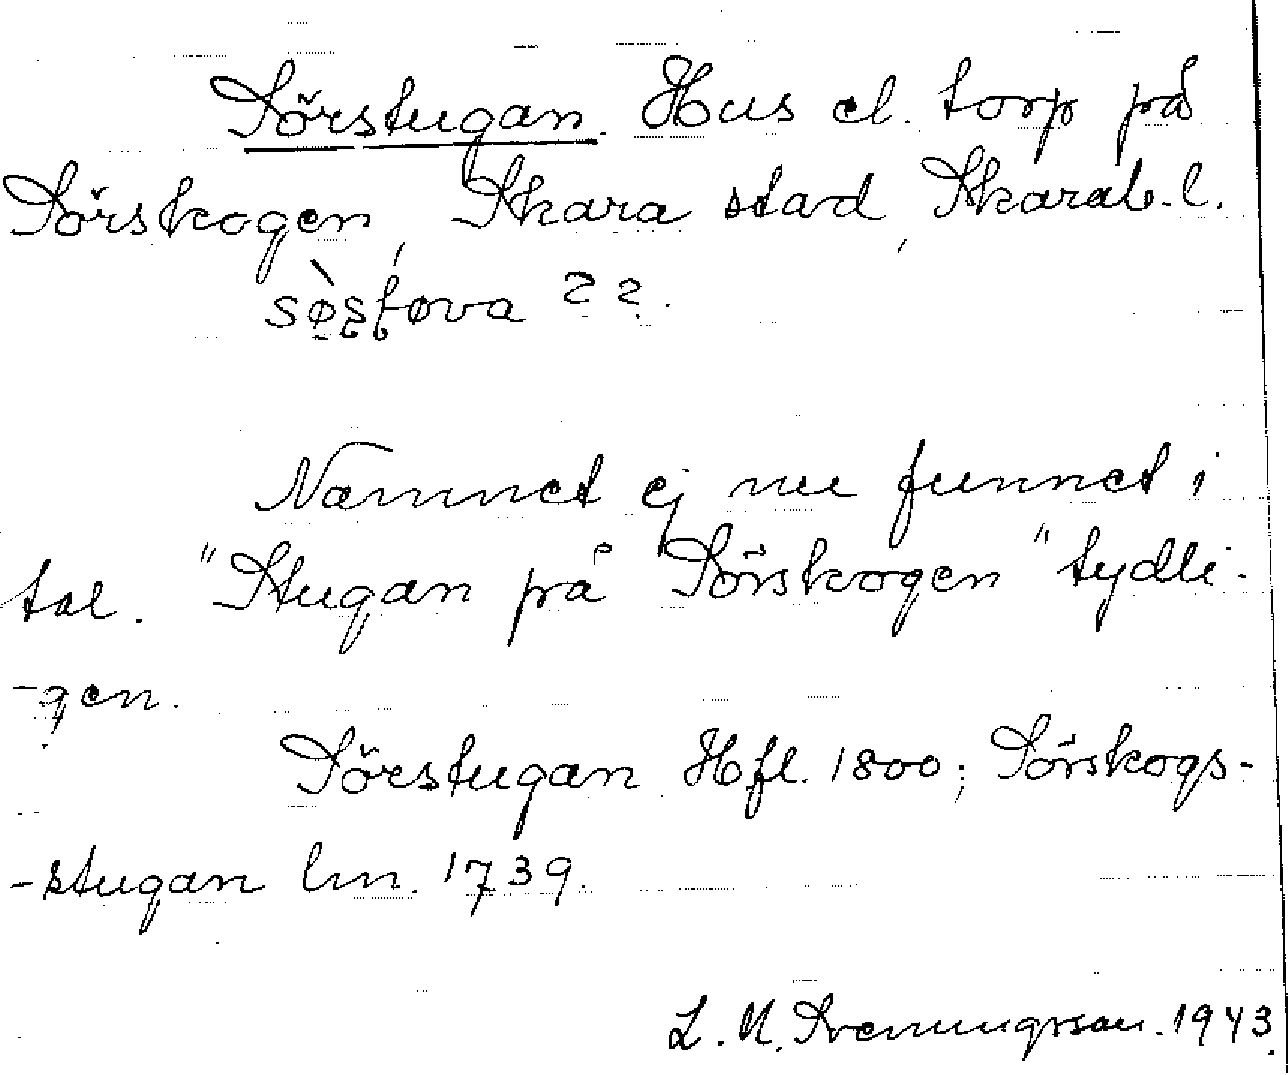 Sörstugan. Hus el. torp på
Sörskogen, Skara stad, Skarab. l.
Namnet ej nu funnet i
tal. "Stugan på Sörskogen" tydli-
-gen.
Sörstugan Hfl. 1800; Sörskogs-
-stugan lm. 1739.
L. M. Svenungsson. 1943.